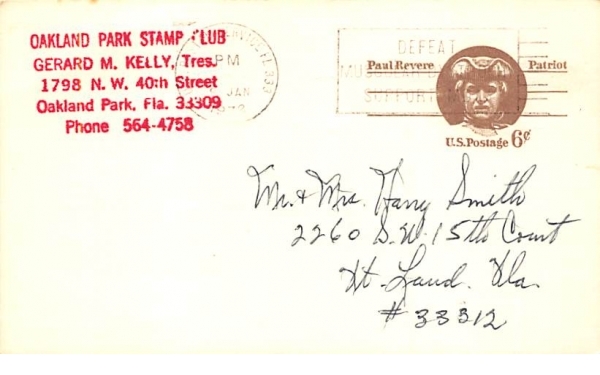 OAKLAND PARK STAMP CLUB
GERARD M. KELLY, Tres.
1798 N. W. 40th Street
Oakland Park, Fla. 33309
Phone 564-4758
PM
JAN
DEFEAT
SUPPORT
Paul Revere
Patriot
U.S. Postage 6¢
Mr. & Mrs. Harry Smith
2260 S.W. 15th Court
Ft. Laud. Fla.
# 33312